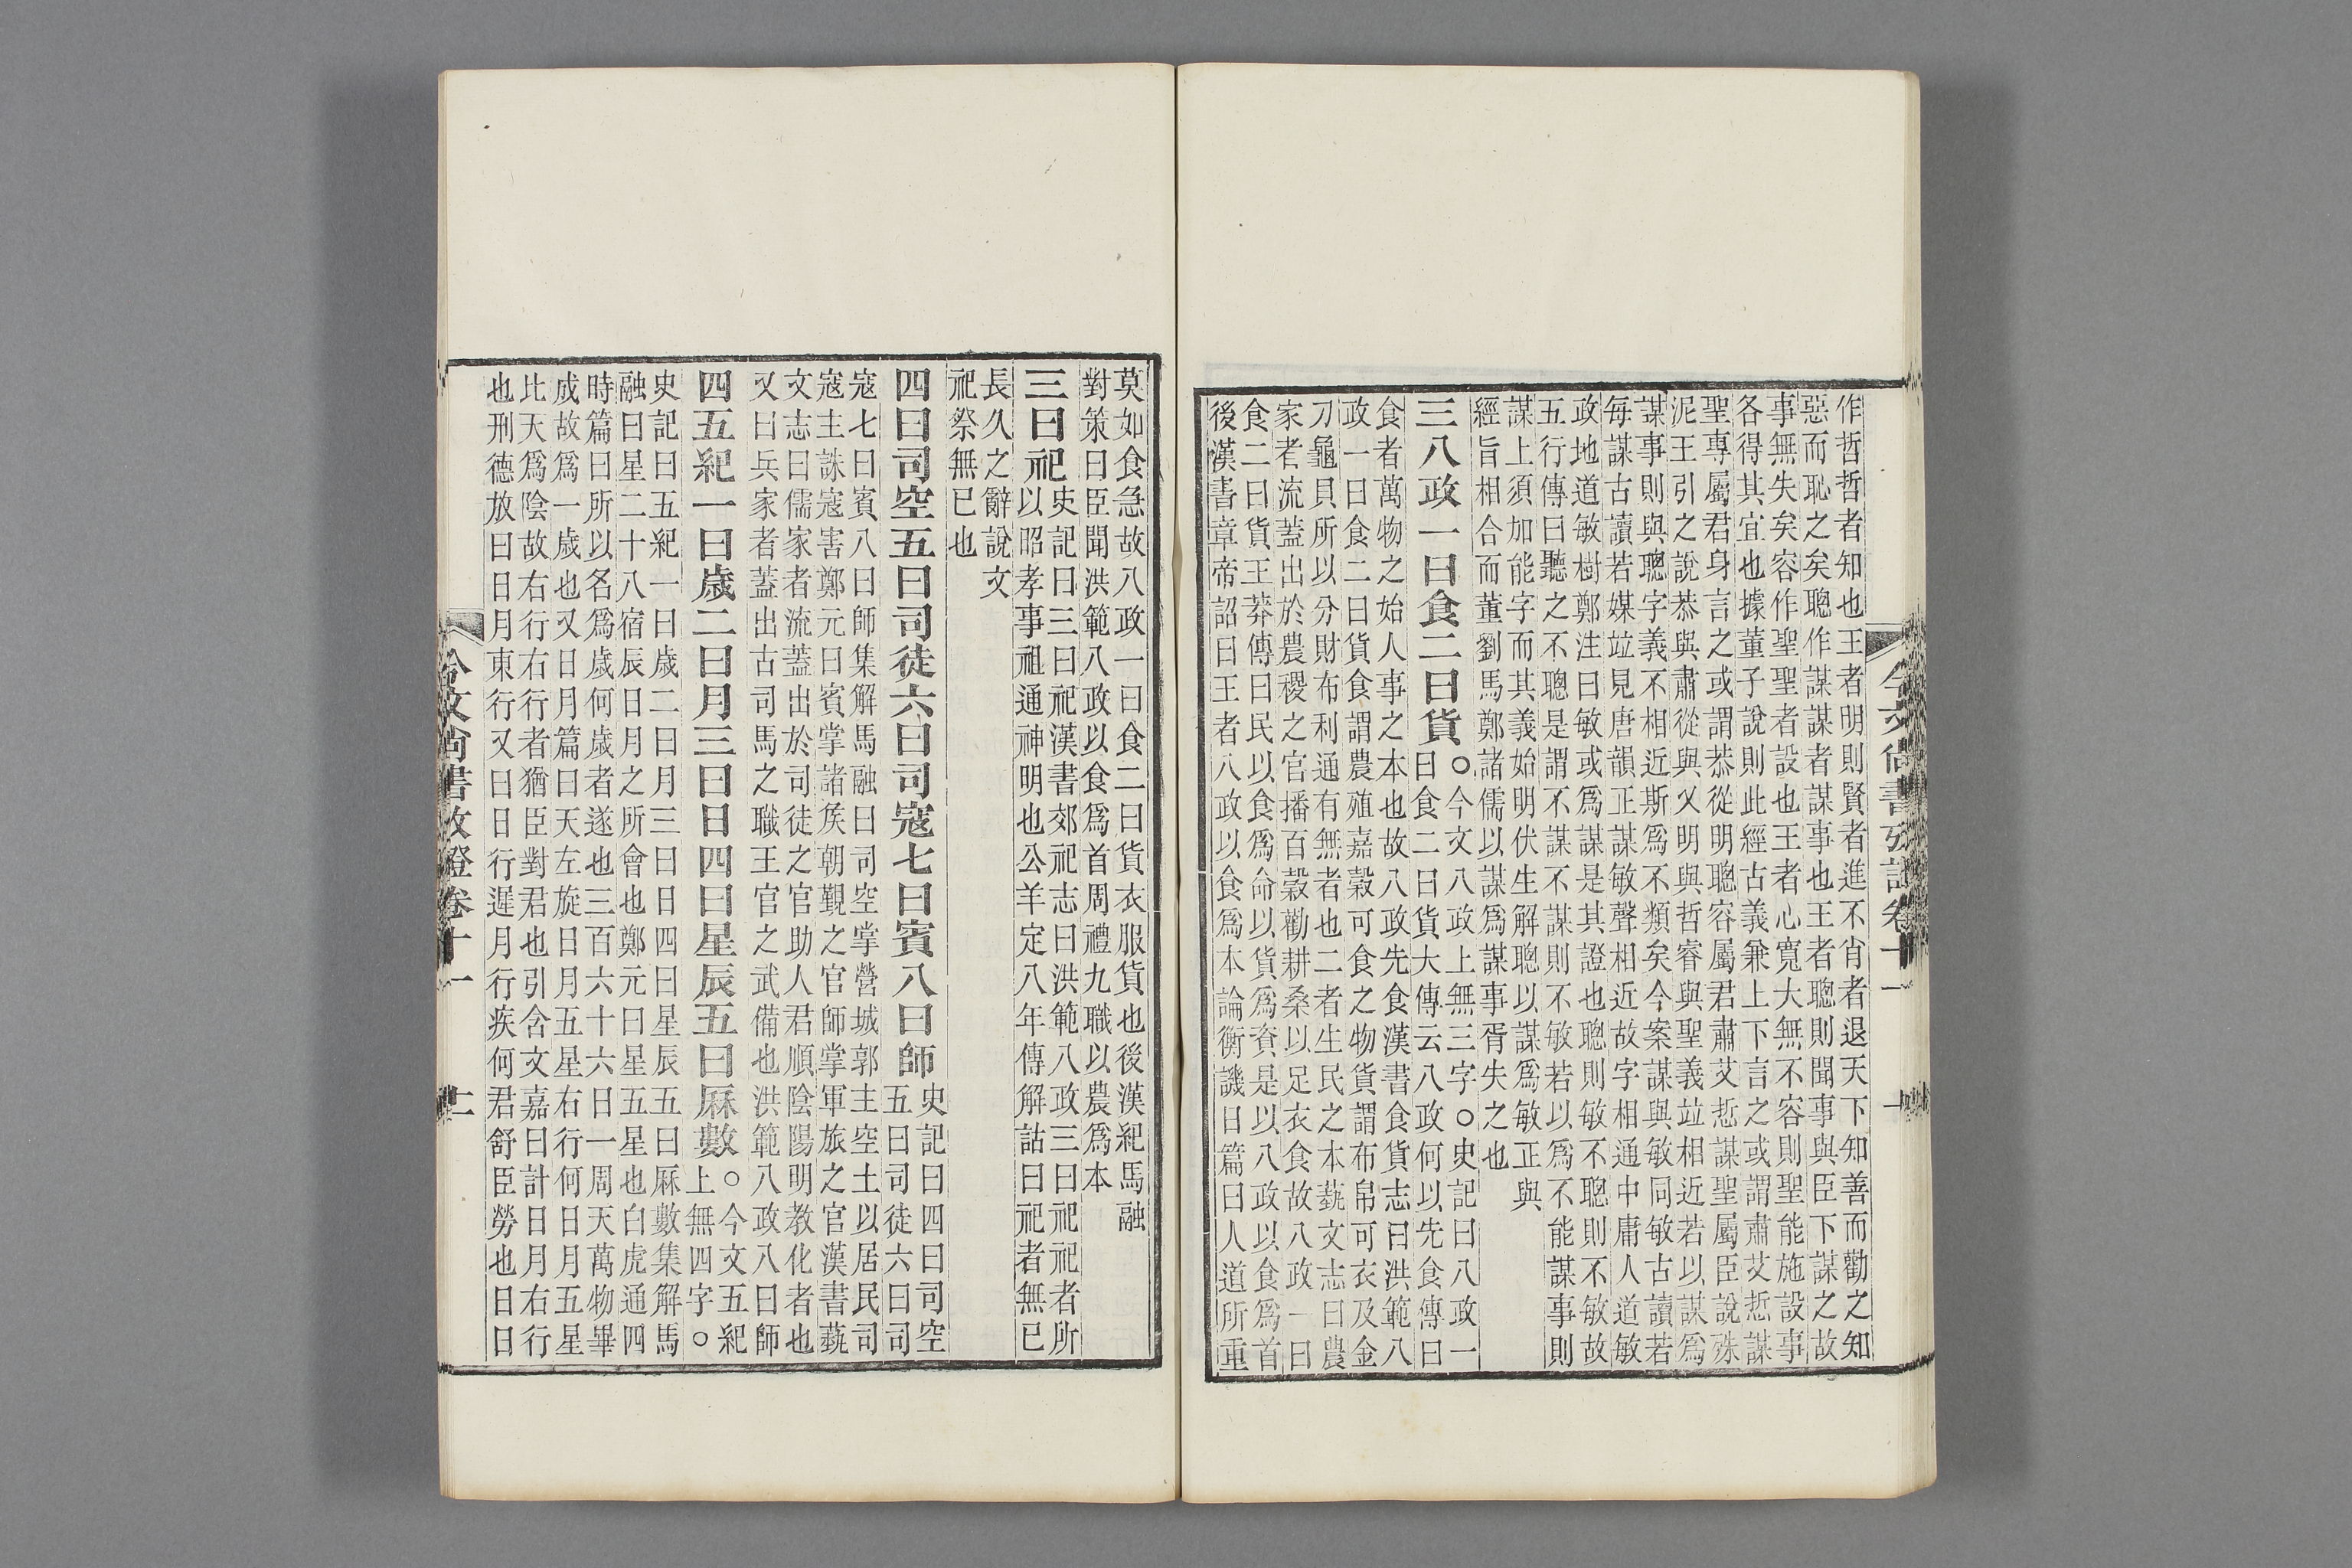 作哲哲者知也王者明則賢者進不肖者退天下知善而勸之知
惡而恥之矣聰作謀謀者謀事也王者聰則聞事與臣下謀之故
事無失矣容作聖聖者設也王者心寬大無不容則聖能施設事
各得其宜也據董子說則此經古義兼上下言之或謂肅艾悊謀
聖專屬君身言之或謂恭從明聰容屬君肅艾悊謀聖屬臣說殊
泥王引之說恭與肅從與乂明與哲睿與聖義竝相近若以謀爲
謀事則與聰字義不相近斯爲不類矣今案謀與敏同敏古讀若
每謀古讀若媒竝見唐韻正謀敏聲相近故字相通中庸人道敏
政地道敏樹鄭注曰敏或爲謀是其證也聰則敏不聰則不敏故
五行傳曰聽之不聰是謂不謀不謀則不敏若以爲不能謀事則
謀上須加能字而其義始明伏生解聰以謀爲敏正與
經旨相合而董劉馬鄭諸儒以謀爲謀事胥失之也
三八政一曰食二曰貨○今文八政上無三字○史記曰八政一
曰食二曰貨大傳云八政何以先食傳曰
食者萬物之始人事之本也故八政先食漢書食貨志曰洪範八
政一曰食二曰貨食謂農殖嘉穀可食之物貨謂布帛可衣及金
刀龜貝所以分財布利通有無者也二者生民之本蓺文志曰農
家者流蓋出於農稷之官播百穀勸耕桑以足衣食故八政一曰
食二曰貨王莽傳曰民以食爲命以貨爲資是以八政以食爲首
後漢書章帝詔曰王者八政以食爲本論衡譏日篇曰人道所重
今文尚書攷證卷十一
莫如食急故八政一曰食二曰貨衣服貨也後漢紀馬融
對策曰臣聞洪範八政以食爲首周禮九職以農爲本
三曰祀史記曰三曰祀漢書郊祀志曰洪範八政三曰祀祀者所
以昭孝事祖通神明也公羊定八年傳解詁曰祀者無已
長久之辭說文
祀祭無已也
四曰司空五曰司徒六曰司寇七曰賓八曰師史記曰四曰司空
五曰司徒六曰司
寇七曰賓八曰師集解馬融曰司空掌營城郭主空土以居民司
寇主誅寇害鄭元曰賓掌諸矦朝覲之官師掌軍旅之官漢書蓺
文志曰儒家者流蓋出於司徒之官助人君順陰陽明教化者也
又曰兵家者蓋出古司馬之職王官之武備也洪範八政八曰師
四五紀一曰歲二曰月三曰日四曰星辰五曰厤數○今文五紀
上無四字○
史記曰五紀一曰歲二曰月三曰日四曰星辰五曰厤數集解馬
融曰星二十八宿辰日月之所會也鄭元曰星五星也白虎通四
時篇曰所以名爲歲何歲者遂也三百六十六日一周天萬物畢
成故爲一歲也又日月篇曰天左旋日月五星右行何日月五星
比天爲陰故右行右行者猶臣對君也引含文嘉曰計日月右行
也刑德放曰日月東行又曰日行遲月行疾何君舒臣勞也日日
今文尚書攷證卷十一